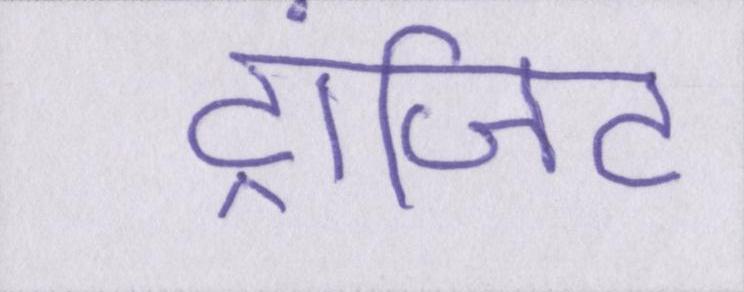 ट्रांजिट